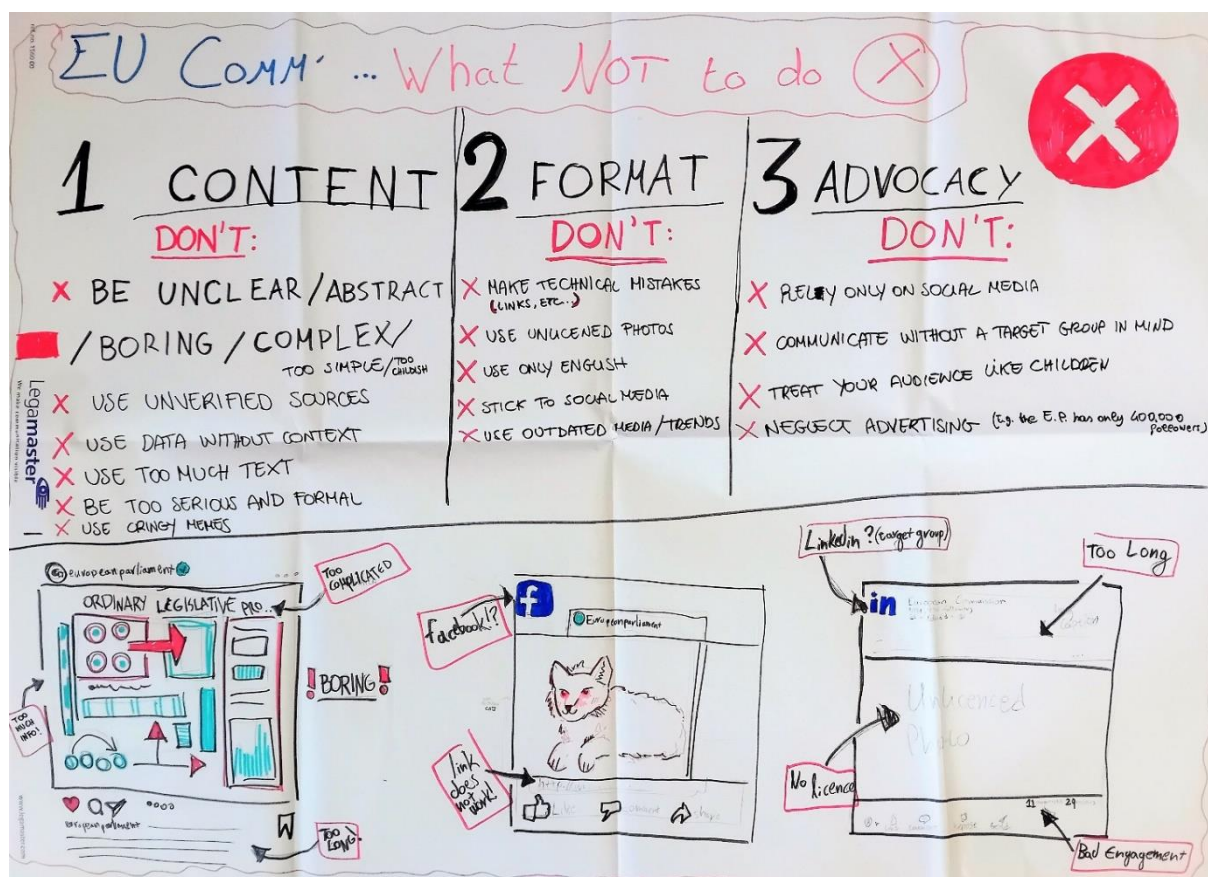 EU COMM' ... What NOT to do X
1 CONTENT
DON'T:
X BE UNCLEAR/ABSTRACT
/BORING/COMPLEX/
TOO SIMPLE/TOO CHILDISH
X USE UNVERIFIED SOURCES
X USE DATA WITHOUT CONTEXT
X USE TOO MUCH TEXT
X BE TOO SERIOUS AND FORMAL
X USE CRINGY MEMES
2 FORMAT
DON'T:
X MAKE TECHNICAL MISTAKES
(LINKS, ETC..)
X USE UNLICENED PHOTOS
X USE ONLY ENGLISH
X STICK TO SOCIAL MEDIA
X USE OUTDATED MEDIA/TRENDS
3 ADVOCACY
DON'T:
X RELY ONLY ON SOCIAL MEDIA
X COMMUNICATE WITHOUT A TARGET GROUP IN MIND
X TREAT YOUR AUDIENCE LIKE CHILDREN
X NEGLECT ADVERTISING (E.g. the E.P. has only 400,000
followers)
Legamaster
europeanparliament
ORDINARY LEGISLATIVE PRO...
TOO
COMPLICATED
TOO
MUCH
INFO!
! BORING !
europeanparliament
TOO
LONG!
facebook!?
f
Europeanparliament
link
does
not
work!
http://
Like comment share
Linkedin?(target group)
Too Long
in European Commission
Unlicenced
Photo
No licence
11 29
Bad Engagement